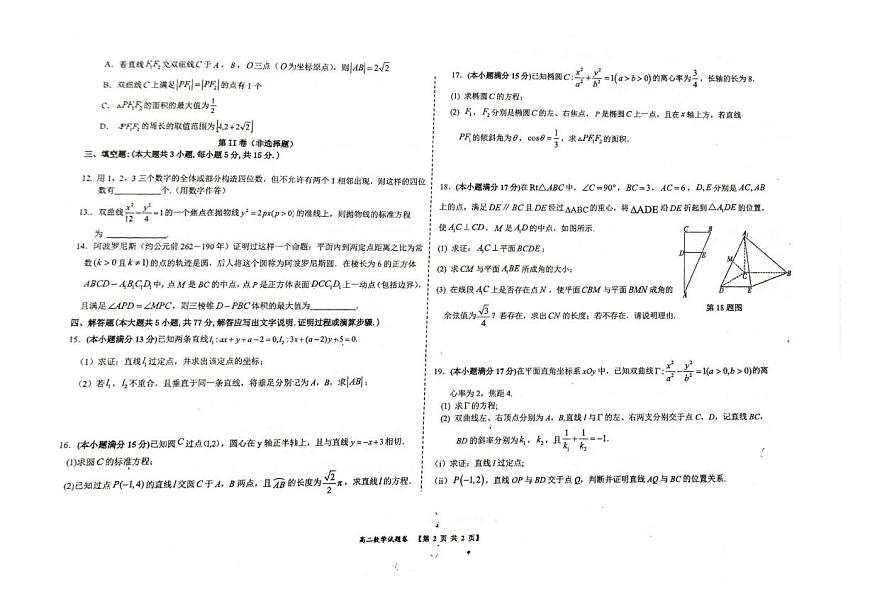 A. 若直线 F₁F₂ 交双纽线 C 于 A, B, O 三点 (O 为坐标原点), 则|AB|=2√2
B. 双纽线 C 上满足|PF₁|=|PF₂|的点有 1 个
C. △PF₁F₂ 的面积的最大值为 1/2
D. △PF₁F₂ 的周长的取值范围为[4,2+2√2]
第 II 卷（非选择题）
三、填空题: (本大题共 3 小题, 每小题 5 分, 共 15 分. )
12. 用 1、2、3 三个数字的全体或部分构造四位数, 但不允许有两个 1 相邻出现, 则这样的四位
数有____个. (用数字作答)
13. . 双曲线 x²/12 - y²/4 =1 的一个焦点在抛物线 y²=2px(p>0) 的准线上, 则抛物线的标准方程
为 ____.
14. 阿波罗尼斯（约公元前 262－190 年）证明过这样一个命题: 平面内到两定点距离之比为常
数(k>0 且 k≠1) 的点的轨迹是圆, 后人将这个圆称为阿波罗尼斯圆. 在棱长为 6 的正方体
ABCD－A₁B₁C₁D₁ 中, 点 M 是 BC 的中点, 点 P 是正方体表面 DCC₁D₁ 上一动点 (包括边界),
且满足∠APD=∠MPC, 则三棱锥 D－PBC 体积的最大值为____.
四、解答题 (本大题共 5 小题, 共 77 分, 解答应写出文字说明. 证明过程或演算步骤. )
15. (本小题满分 13 分)已知两条直线 l₁: ax+y+a-2=0, l₂: 3x+(a-2)y+5=0.
（1）求证: 直线 l₁ 过定点, 并求出该定点的坐标;
（2）若 l₁, l₂ 不重合, 且垂直于同一条直线, 将垂足分别记为 A, B, 求|AB|;
16. (本小题满分 15 分)已知圆 C 过点(1,2), 圆心在 y 轴正半轴上, 且与直线 y=-x+3 相切.
(1)求圆 C 的标准方程;
(2)已知过点 P(-1,4) 的直线 l 交圆 C 于 A, B 两点, 且 AB 的长度为 √2/2 π, 求直线 l 的方程.
17. (本小题满分 15 分)已知椭圆 C: x²/a² + y²/b² =1(a>b>0) 的离心率为 3/4, 长轴的长为 8.
(1) 求椭圆 C 的方程;
(2) F₁, F₂ 分别是椭圆 C 的左、右焦点, P 是椭圆 C 上一点, 且在 x 轴上方, 若直线
PF₁ 的倾斜角为 θ, cosθ= 1/3, 求△PF₁F₂ 的面积.
18. (本小题满分 17 分)在 Rt△ABC 中, ∠C=90°, BC=3, AC=6, D, E 分别是 AC, AB
上的点, 满足 DE // BC 且 DE 经过△ABC 的重心, 将△ADE 沿 DE 折起到△A₁DE 的位置,
使 A₁C⊥CD, M 是 A₁D 的中点, 如图所示.
(1) 求证: A₁C⊥平面 BCDE;
(2) 求 CM 与平面 A₁BE 所成角的大小;
(3) 在线段 A₁C 上是否存在点 N, 使平面 CBM 与平面 BMN 成角的
余弦值为 √3/4 ? 若存在, 求出 CN 的长度; 若不存在, 请说明理由.
C B D E A
A₁ M C B D E
第 18 题图
19. (本小题满分 17 分)在平面直角坐标系 xOy 中, 已知双曲线Γ: x²/a² - y²/b² =1(a>0,b>0)的离
心率为 2, 焦距 4.
(1) 求Γ的方程;
(2) 双曲线左、右顶点分别为 A, B, 直线 l 与Γ的左、右两支分别交于点 C, D, 记直线 BC,
BD 的斜率分别为 k₁, k₂, 且 1/k₁ + 1/k₂ =-1.
(ⅰ) 求证: 直线 l 过定点;
(ⅱ) P(-1,2), 直线 OP 与 BD 交于点 Q, 判断并证明直线 AQ 与 BC 的位置关系.
高二数学试题卷 【第 2 页 共 2 页】